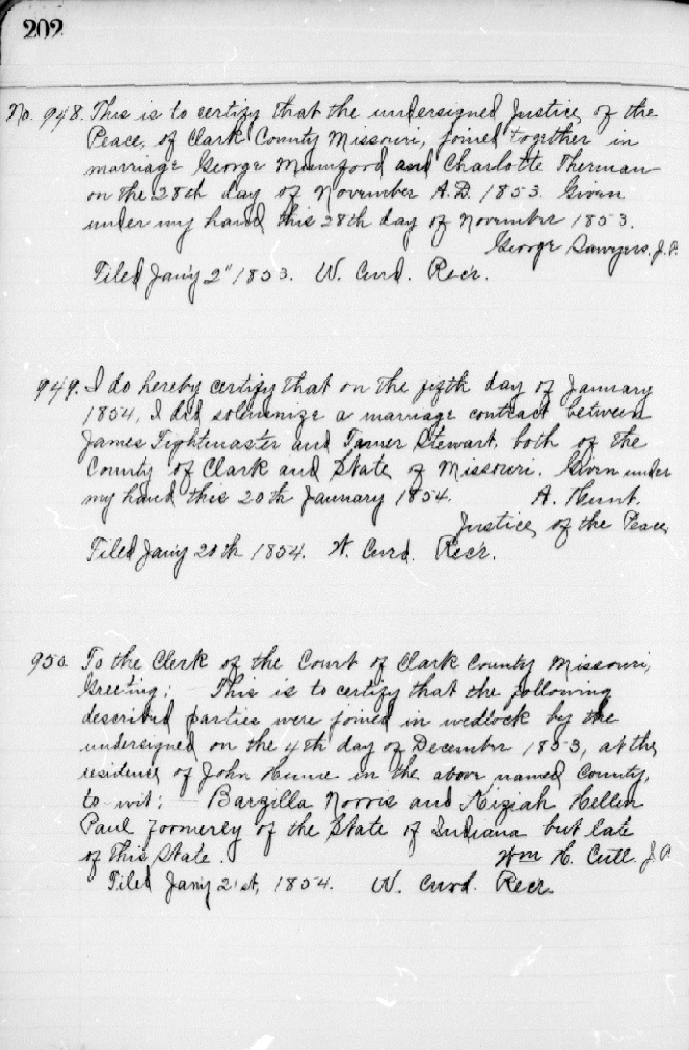 202
No. 948. This is to certify that the undersigned Justice of the
Peace, of Clark County Missouri, joined together in
marriage George Mumford and Charlotte Therman
on the 28th day of November A.D. 1853. Given
under my hand this 28th day of November 1853.
George Sawyers. J.P.
Filed Jan'y 2" 1853. W. Curd. Rec'r.
949. I do hereby certify that on the fifth day of January
1854, I did solemnize a marriage contract between
James Tightmaster and Turner Stewart, both of the
County of Clark and State of Missouri. Given under
my hand this 20th January 1854. A. Hunt.
Justice of the Peace
Filed Jan'y 20th 1854. W. Curd. Rec'r.
950 To the Clerk of the Court of Clark County Missouri,
Greeting; This is to certify that the following
described parties were joined in wedlock by the
undersigned on the 4th day of December 1853, at the
residence of John Hume in the above named County,
to wit; Barzilla Norris and Kiziah Hellen
Paul formerly of the State of Indiana but late
of this State. Wm H. Cutl. J.P.
Filed Jan'y 21st, 1854. W. Curd. Rec'r.